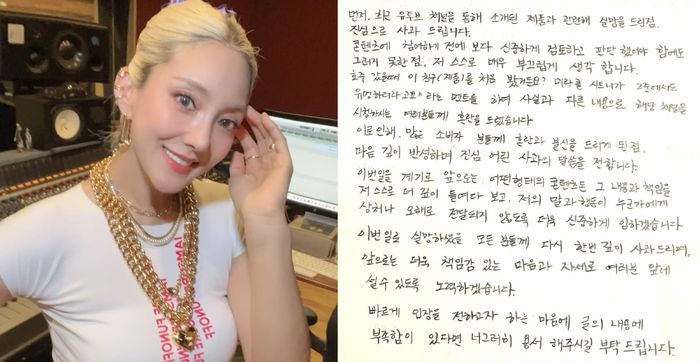 먼저, 최근 유튜브 채널을 통해 소개된 제품과 관련해 실망을 드린점,
진심으로 사과 드립니다.
콘텐츠에 참여하기 전에 보다 신중하게 검토하고 판단 했어야 함에도
그러지 못한 점, 저 스스로 매우 부끄럽게 생각 합니다.
호주 갔을때 이 회사(제품)을 처음 봤거든요? 미란다 시드니가 2층에서도
유명하더라고요" 라는 멘트를 하여 사실과 다른 내용으로 해당 채널을
시청하시는 여러분들께 혼란을 드렸습니다
이로 인해, 많은 소비자 분들께 혼란과 불신을 드리게 된점,
마음 깊이 반성하며 진심 어린 사과의 말씀을 전합니다.
이번일을 계기로 앞으로는 어떤형태의 콘텐츠든 그 내용과 책임을
저 스스로 더 깊이 들여다 보고, 저의 말과 행동이 누군가에게
상처나 오해로 전달되지 않도록 더욱 신중하게 임하겠습니다
이번일로 실망하셨을 모든 분들께 다시 한번 깊이 사과드리며,
앞으로는 더욱 책임감 있는 마음과 자세로 여러분 앞에
설수 있도록 노력하겠습니다.
바르게 입장을 전하고자 하는 마음에 글의 내용에
부족함이 있다면 너그러이 용서 해주시길 부탁 드립니다